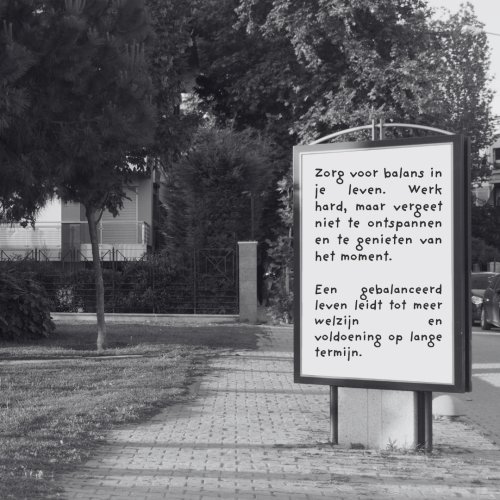 Zorg voor balans in
je leven. Werk
hard, maar vergeet
niet te ontspannen
en te genieten van
het moment.
Een gebalanceerd
leven leidt tot meer
welzijn en
voldoening op lange
termijn.